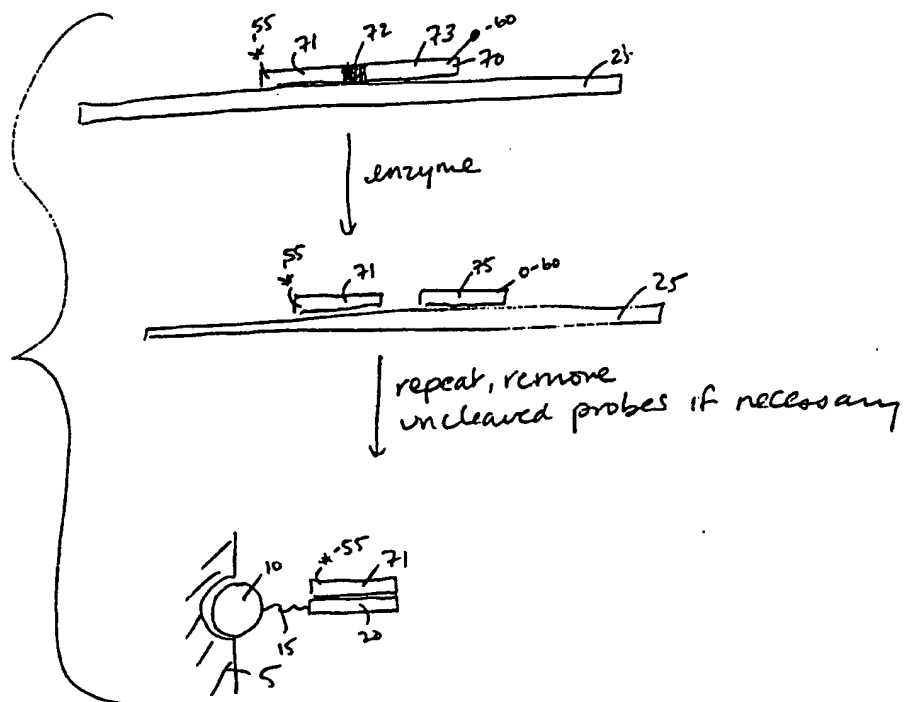 *55 71 72 73 -60
70 25
enzyme
*55 71 75 0-60 25
repeat, remove
uncleaved probes if necessary
*-55 71
10
15 20
5